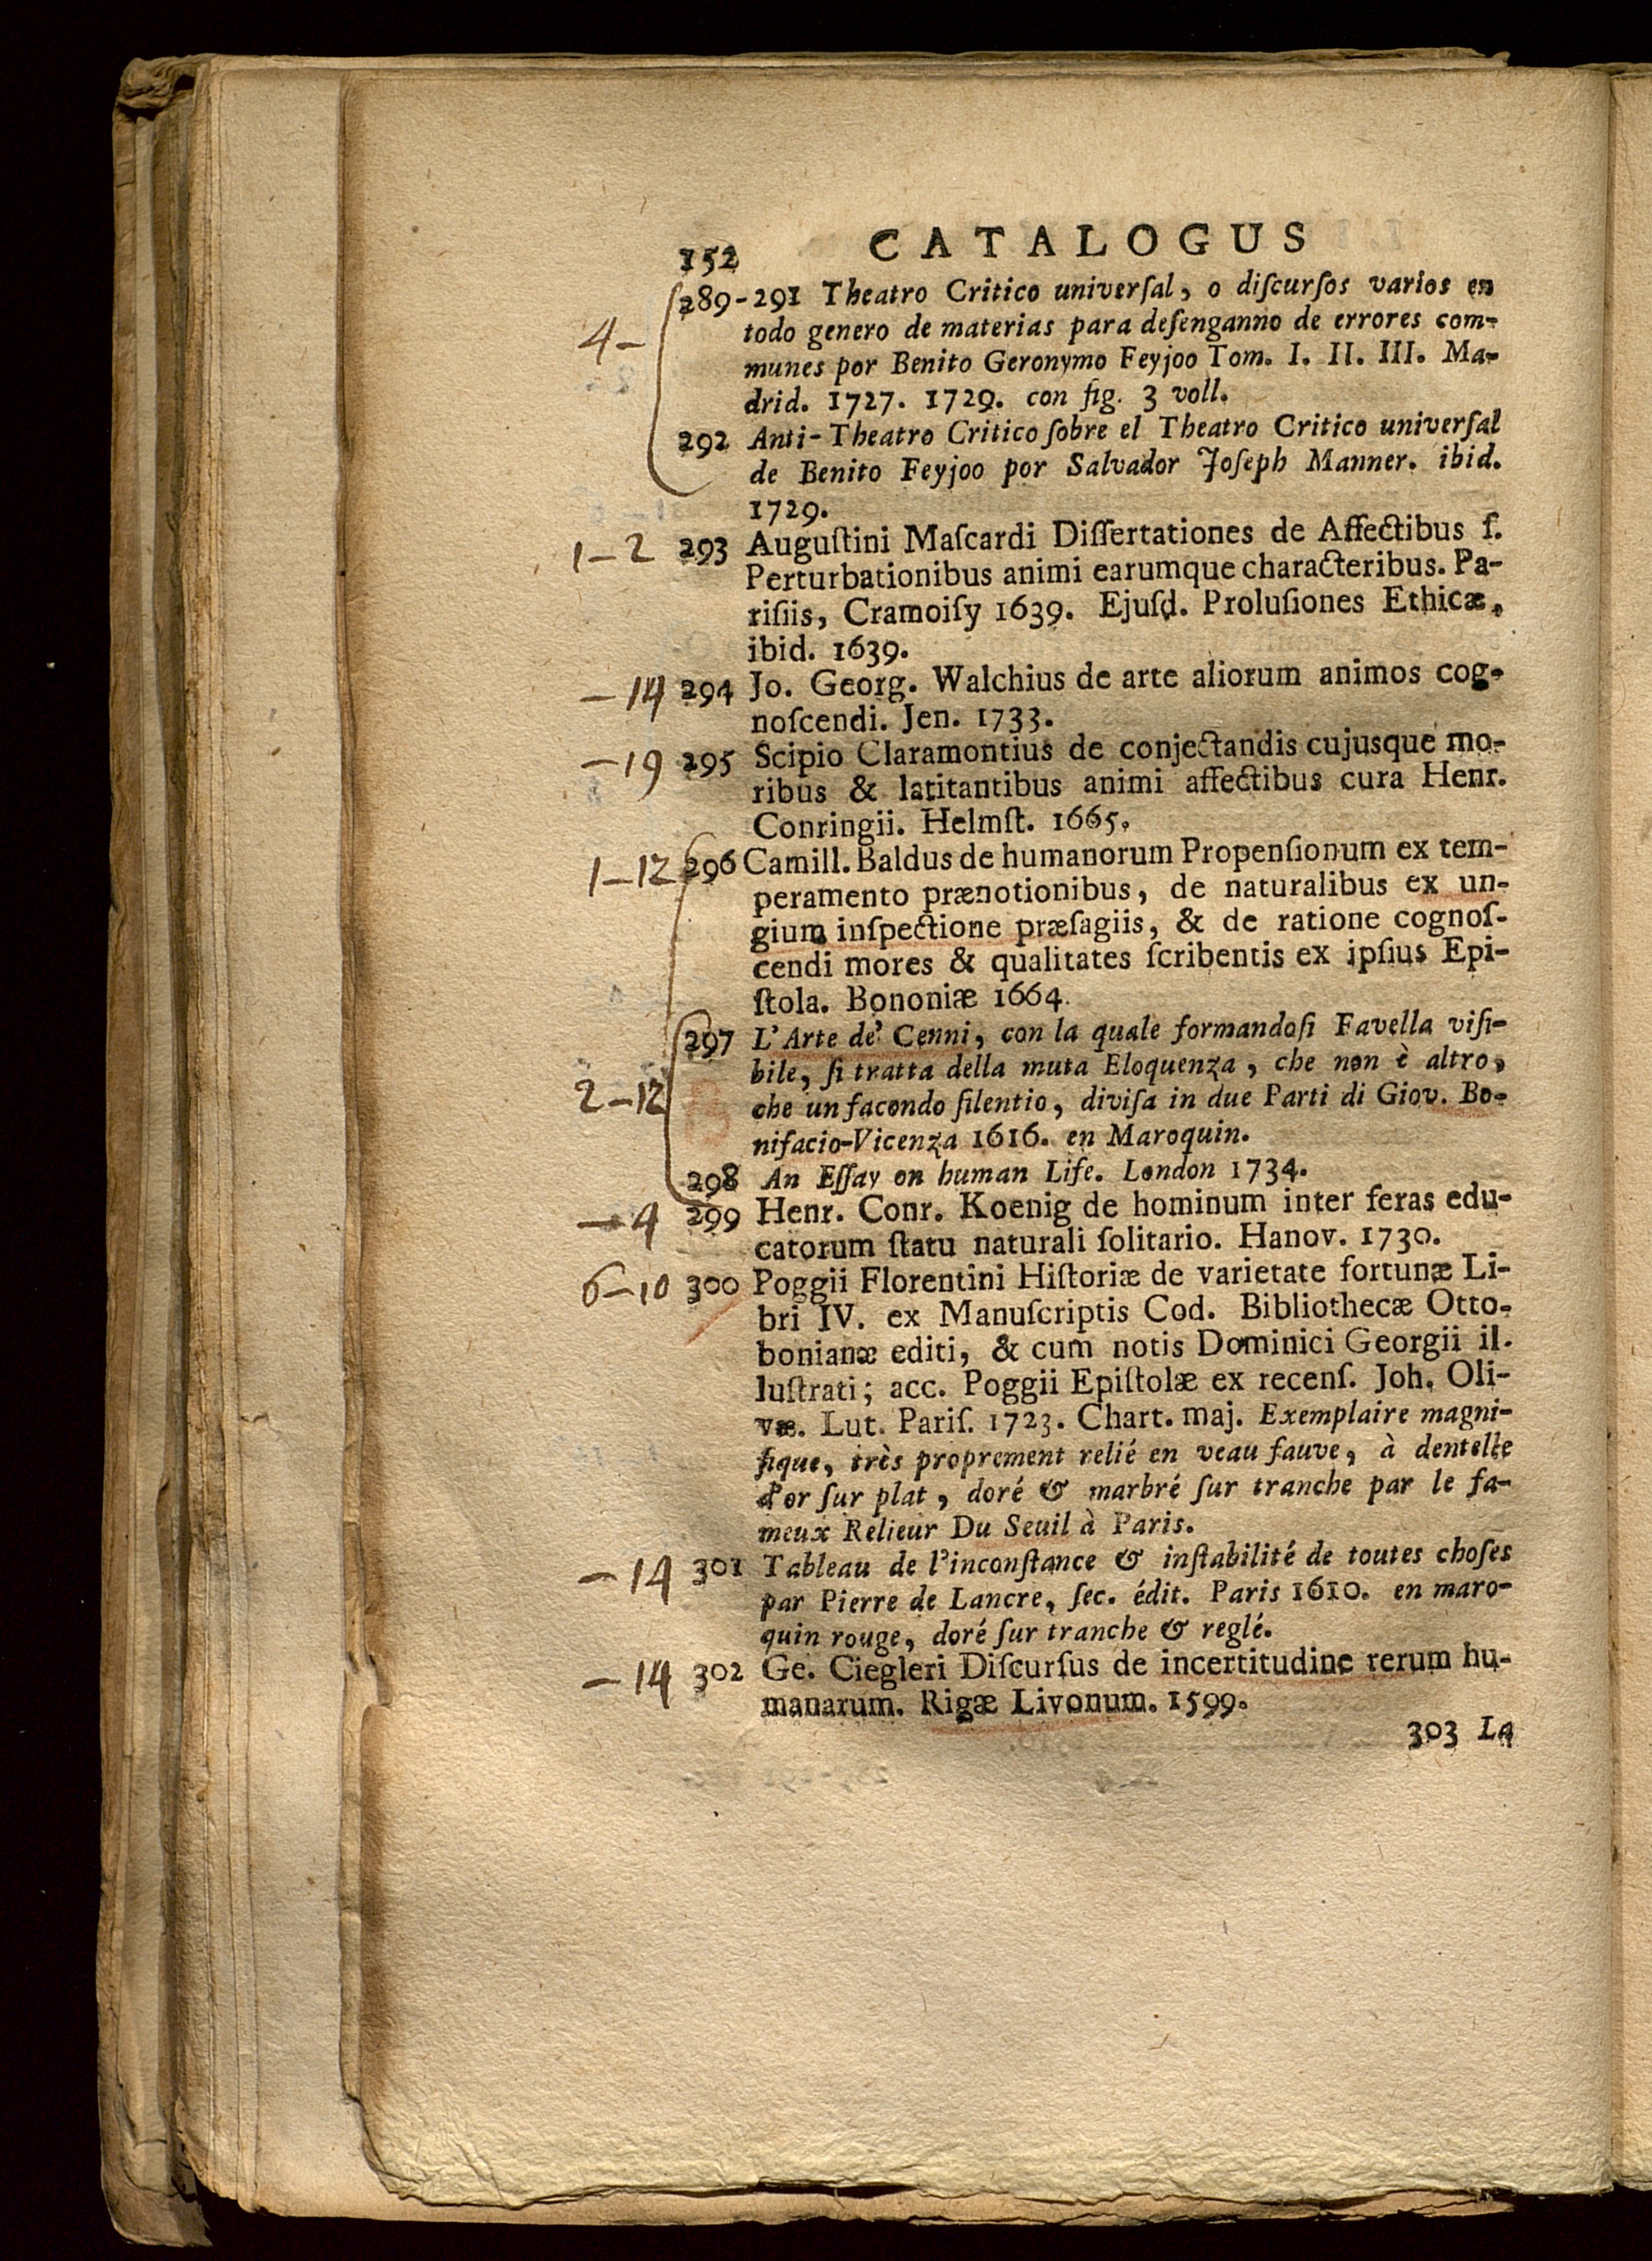 152 CATALOGUS
289-291 Theatro Critico univerſal, o diſcurſos varios en
4- todo genero de materias para deſenganno de errores com-
munes por Benito Geronymo Feyjoo Tom. I. II. III. Ma-
drid. 1727. 1729. con fig. 3 voll.
292 Anti-Theatro Critico ſobre el Theatro Critico univerſal
de Benito Feyjoo por Salvador Joſeph Manner. ibid.
1729.
1-2 293 Auguſtini Maſcardi Diſſertationes de Affectibus ſ.
Perturbationibus animi earumque characteribus. Pa-
riſiis, Cramoiſy 1639. Ejuſd. Proluſiones Ethicæ,
ibid. 1639.
-14 294 Jo. Georg. Walchius de arte aliorum animos cog-
noſcendi. Jen. 1733.
-19 295 Scipio Claramontius de conjectandis cujusque mo-
ribus & latitantibus animi affectibus cura Henr.
Conringii. Helmſt. 1665.
1-12 296 Camill. Baldus de humanorum Propenſionum ex tem-
peramento prænotionibus, de naturalibus ex un-
gium inſpectione præſagiis, & de ratione cognoſ-
cendi mores & qualitates ſcribentis ex ipſius Epi-
ſtola. Bononiæ 1664.
297 L'Arte de' Cenni, con la quale formandoſi Favella viſi-
bile, ſi tratta della muta Eloquenza, che non è altro,
2-12 che un facondo ſilentio, diviſa in due Parti di Giov. Bo-
nifacio-Vicenza 1616. en Maroquin.
298 An Eſſay on human Life. London 1734.
-4 299 Henr. Conr. Koenig de hominum inter feras edu-
catorum ſtatu naturali ſolitario. Hanov. 1730.
6-10 300 Poggii Florentini Hiſtoriæ de varietate fortunæ Li-
bri IV. ex Manuſcriptis Cod. Bibliothecæ Otto-
bonianæ editi, & cum notis Dominici Georgii il-
luſtrati; acc. Poggii Epiſtolæ ex recenſ. Joh. Oli-
væ. Lut. Pariſ. 1723. Chart. maj. Exemplaire magni-
fique, très proprement relié en veau fauve, à dentelle
d'or ſur plat, doré & marbré ſur tranche par le fa-
meux Relieur Du Seuil à Paris.
-14 301 Tableau de l'inconſtance & inſtabilité de toutes choſes
par Pierre de Lancre, ſec. édit. Paris 1610. en maro-
quin rouge, doré ſur tranche & reglé.
-14 302 Ge. Ciegleri Diſcurſus de incertitudine rerum hu-
manarum. Rigæ Livonum. 1599.
303 La